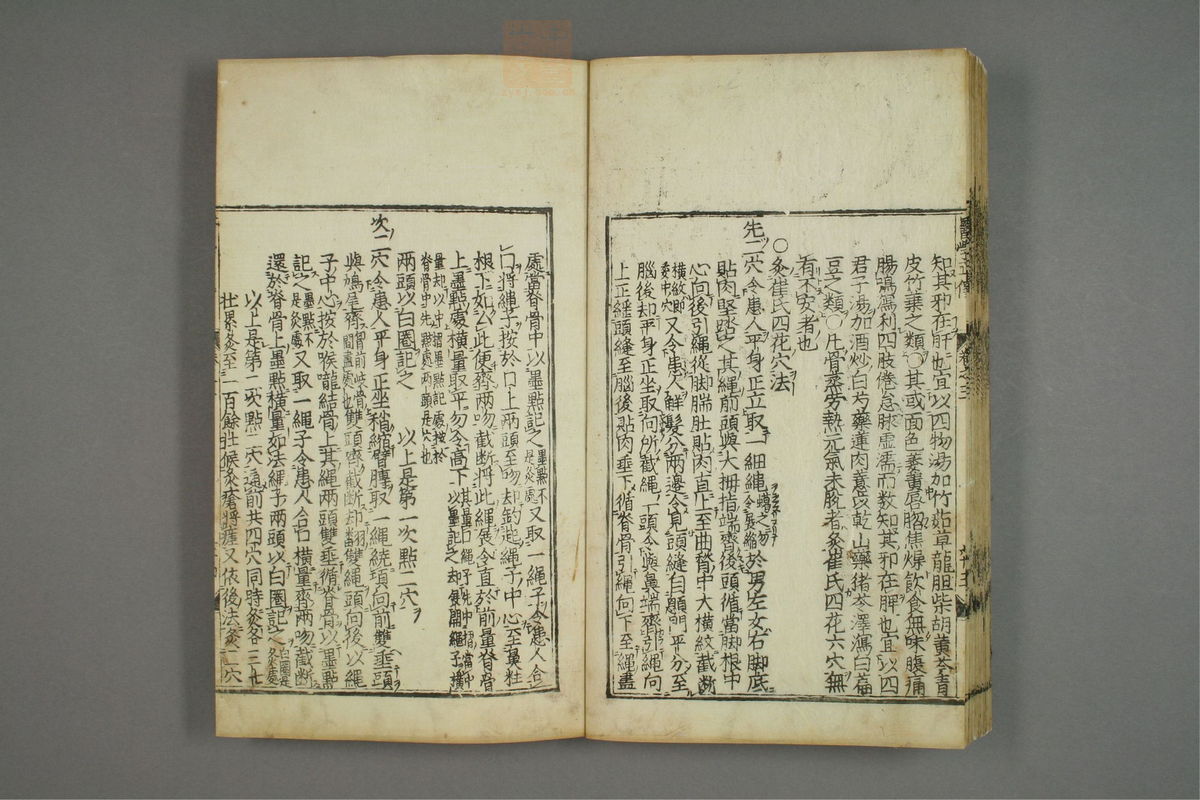 知其邪在肝也宜以四物湯加竹茹草龍胆柴胡黃芩青
皮竹葉之類○其或面色萎黃唇脗焦燥飲食無味腹痛
腸鳴瀉利四肢倦怠脉虚濡而数知其邪在脾也宜以四
君子湯加酒炒白芍藥蓮肉薏苡乾山藥猪苓澤瀉白扁
豆之類○凡骨蒸労熱元氣未脫者灸崔氏四花六穴無
有不安者也
○灸崔氏四花穴法
先二穴令患人平身正立取一細繩蠟之勿令展縮於男左女右脚底
貼肉堅踏之其繩前頭與大拇指端齊後頭循當脚根中
心向後引繩從脚腨肚貼肉直上至曲䐐中大橫紋截断
橫紋即委中穴又令患人解髮分兩邊令見頭縫自顖門平分至
腦後却平身正坐取向所截繩一頭令與鼻端齊引繩向
上正經頭縫至腦後貼肉垂下循脊骨引繩向下至繩盡
處當脊骨中以墨點記之墨點不是灸處又取一繩子令患人合
口將繩子按於口上兩頭至吻却鈎起繩子中心至鼻柱
根下如人此便齊兩吻截断將此繩展令直於前量脊骨
上墨點處橫量取平勿令高下
兩頭以白圈記之　以上是第一次點二穴
次二穴令患人平身正坐稍縮臂膊取一繩繞項向前雙垂頭
與鳩尾齊雙頭齊截断却背雙繩頭向後以繩
子中心按於喉嚨結骨上其繩兩頭雙垂循脊骨以墨點
記之墨點不是灸處又取一繩子令患人合口橫量齊兩吻截断
還於脊骨上墨點橫量如法繩子兩頭以白圈記之白圈是灸處
以上是第二次點二穴通前共四穴同時灸各三七
壮累灸至一百餘壮候灸瘡將瘥又依後法灸二穴